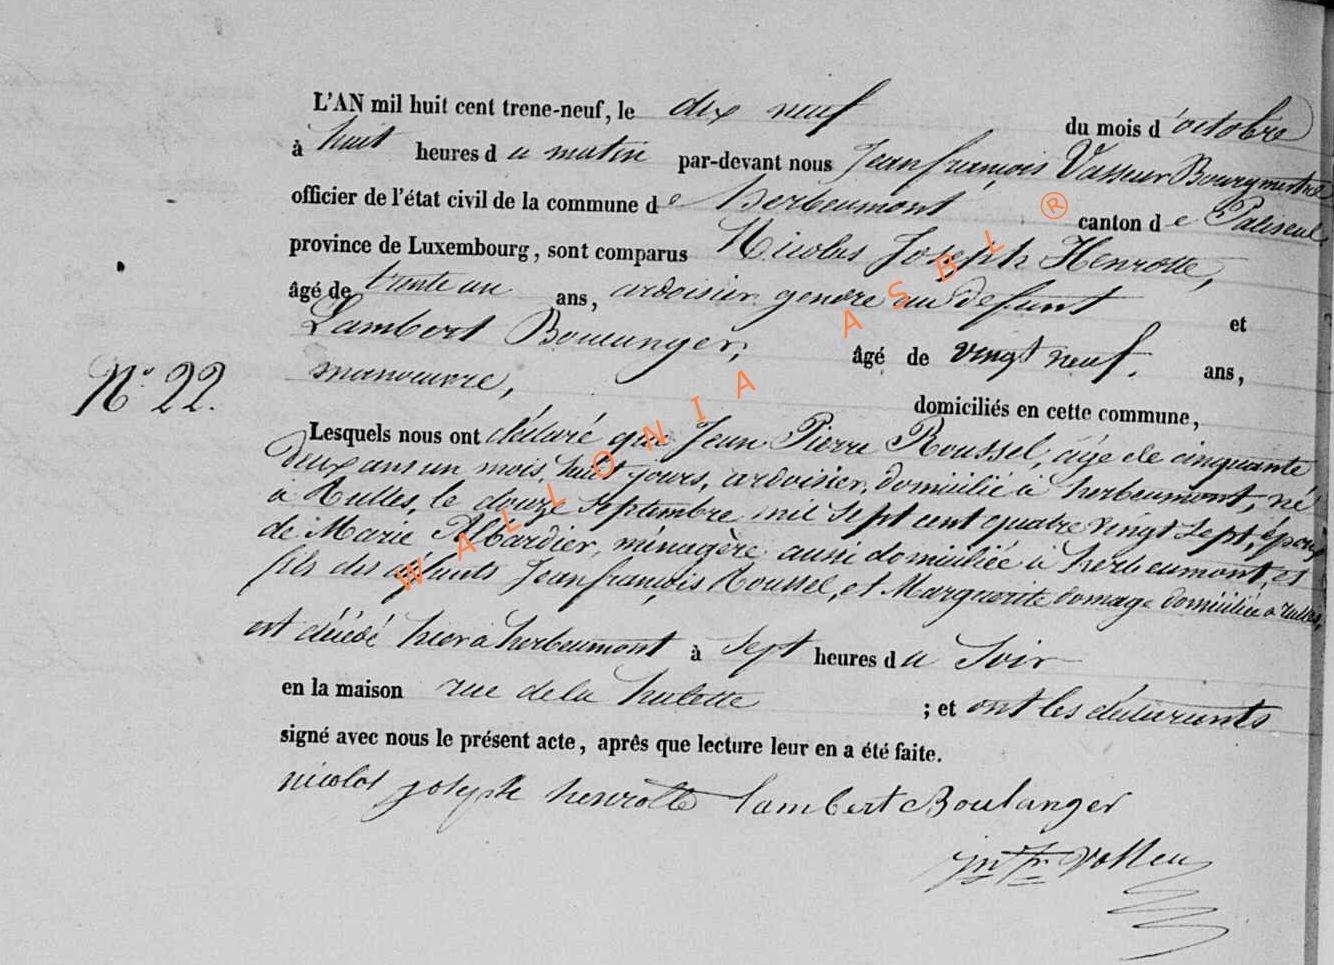 L'AN mil huit cent trene-neuf, le dix neuf du mois d'octobre
à huit heures du matin par-devant nous Jean françois Vasseur Bourgmestre
officier de l'état civil de la commune de herbeumont canton de Paliseul
province de Luxembourg, sont comparus Nicolas Joseph Henrotte,
âgé de trente un ans, ardoisier gendre au défunt et
Lambert Boulanger, âgé de vingt neuf. ans,
N° 22. manoeuvre, domiciliés en cette commune,
Lesquels nous ont déclaré que Jean Pierre Roussel, âgé de cinquante
deux ans un mois, huit jours, ardoisier, domicilié à herbeumont, né
à Rulles, le douze Septembre mil sept cent quatre vingt sept, époux
de Marie Albardier, ménagère aussi domiciliée à herbeumont, et
fils des défunts Jean françois Roussel, et Marguerite domage domiciliée a rulles,
est décédé hier à herbeumont à Sept heures du Soir
en la maison rue de la hulette ; et ont les déclarants
signé avec nous le présent acte, après que lecture leur en a été faite.
nicolas joseph henrotte lambert Boulanger
WALLONIA ASBL ®